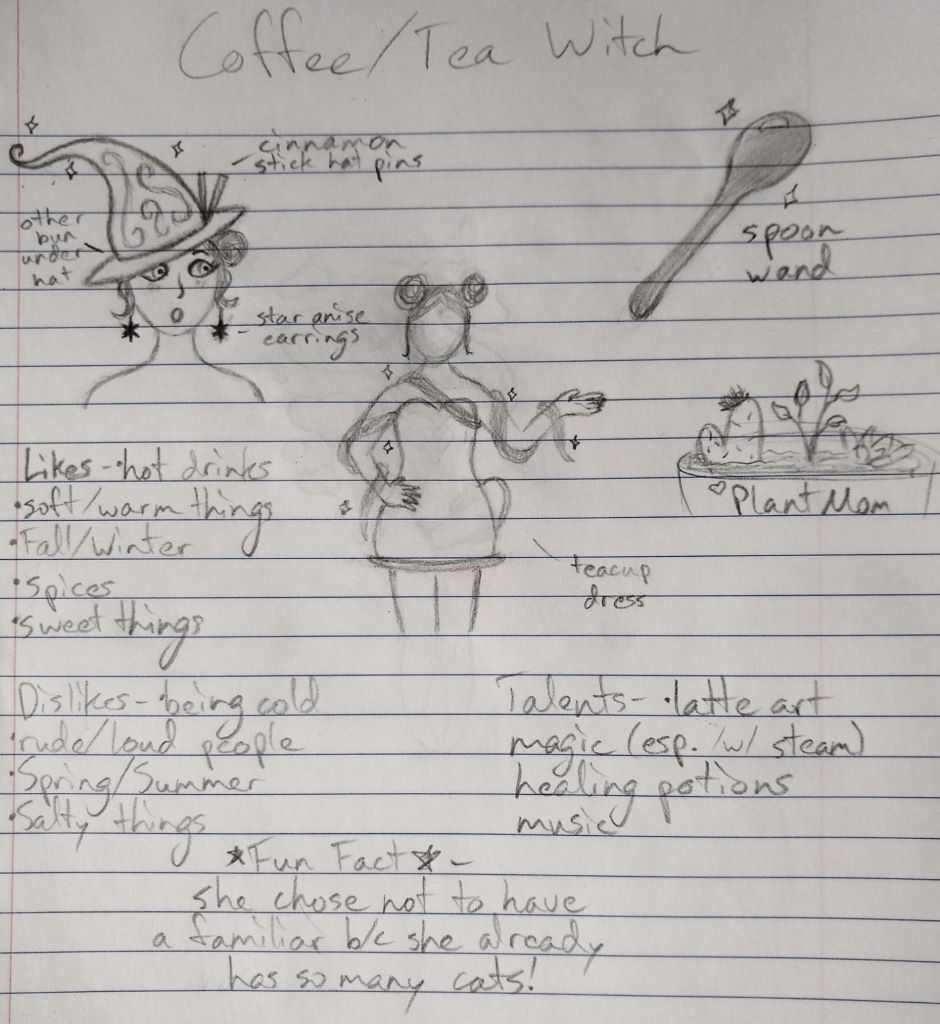 Coffee/Tea Witch
cinnamon
stick hat pins
other
bun
under
hat
star anise
earrings
spoon
wand
♡Plant Mom
teacup
dress
Likes-·hot drinks
·soft/warm things
·Fall/Winter
·spices
·sweet things
Dislikes-·being cold
·rude/loud people
·Spring/Summer
·Salty things
Talents-·latte art
magic (esp. w/ steam)
healing potions
music
★Fun Fact★-
she chose not to have
a familiar b/c she already
has so many cats!